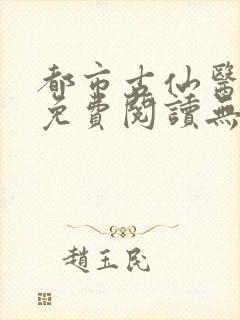 都市古仙醫
免費閱讀無
趙玉民